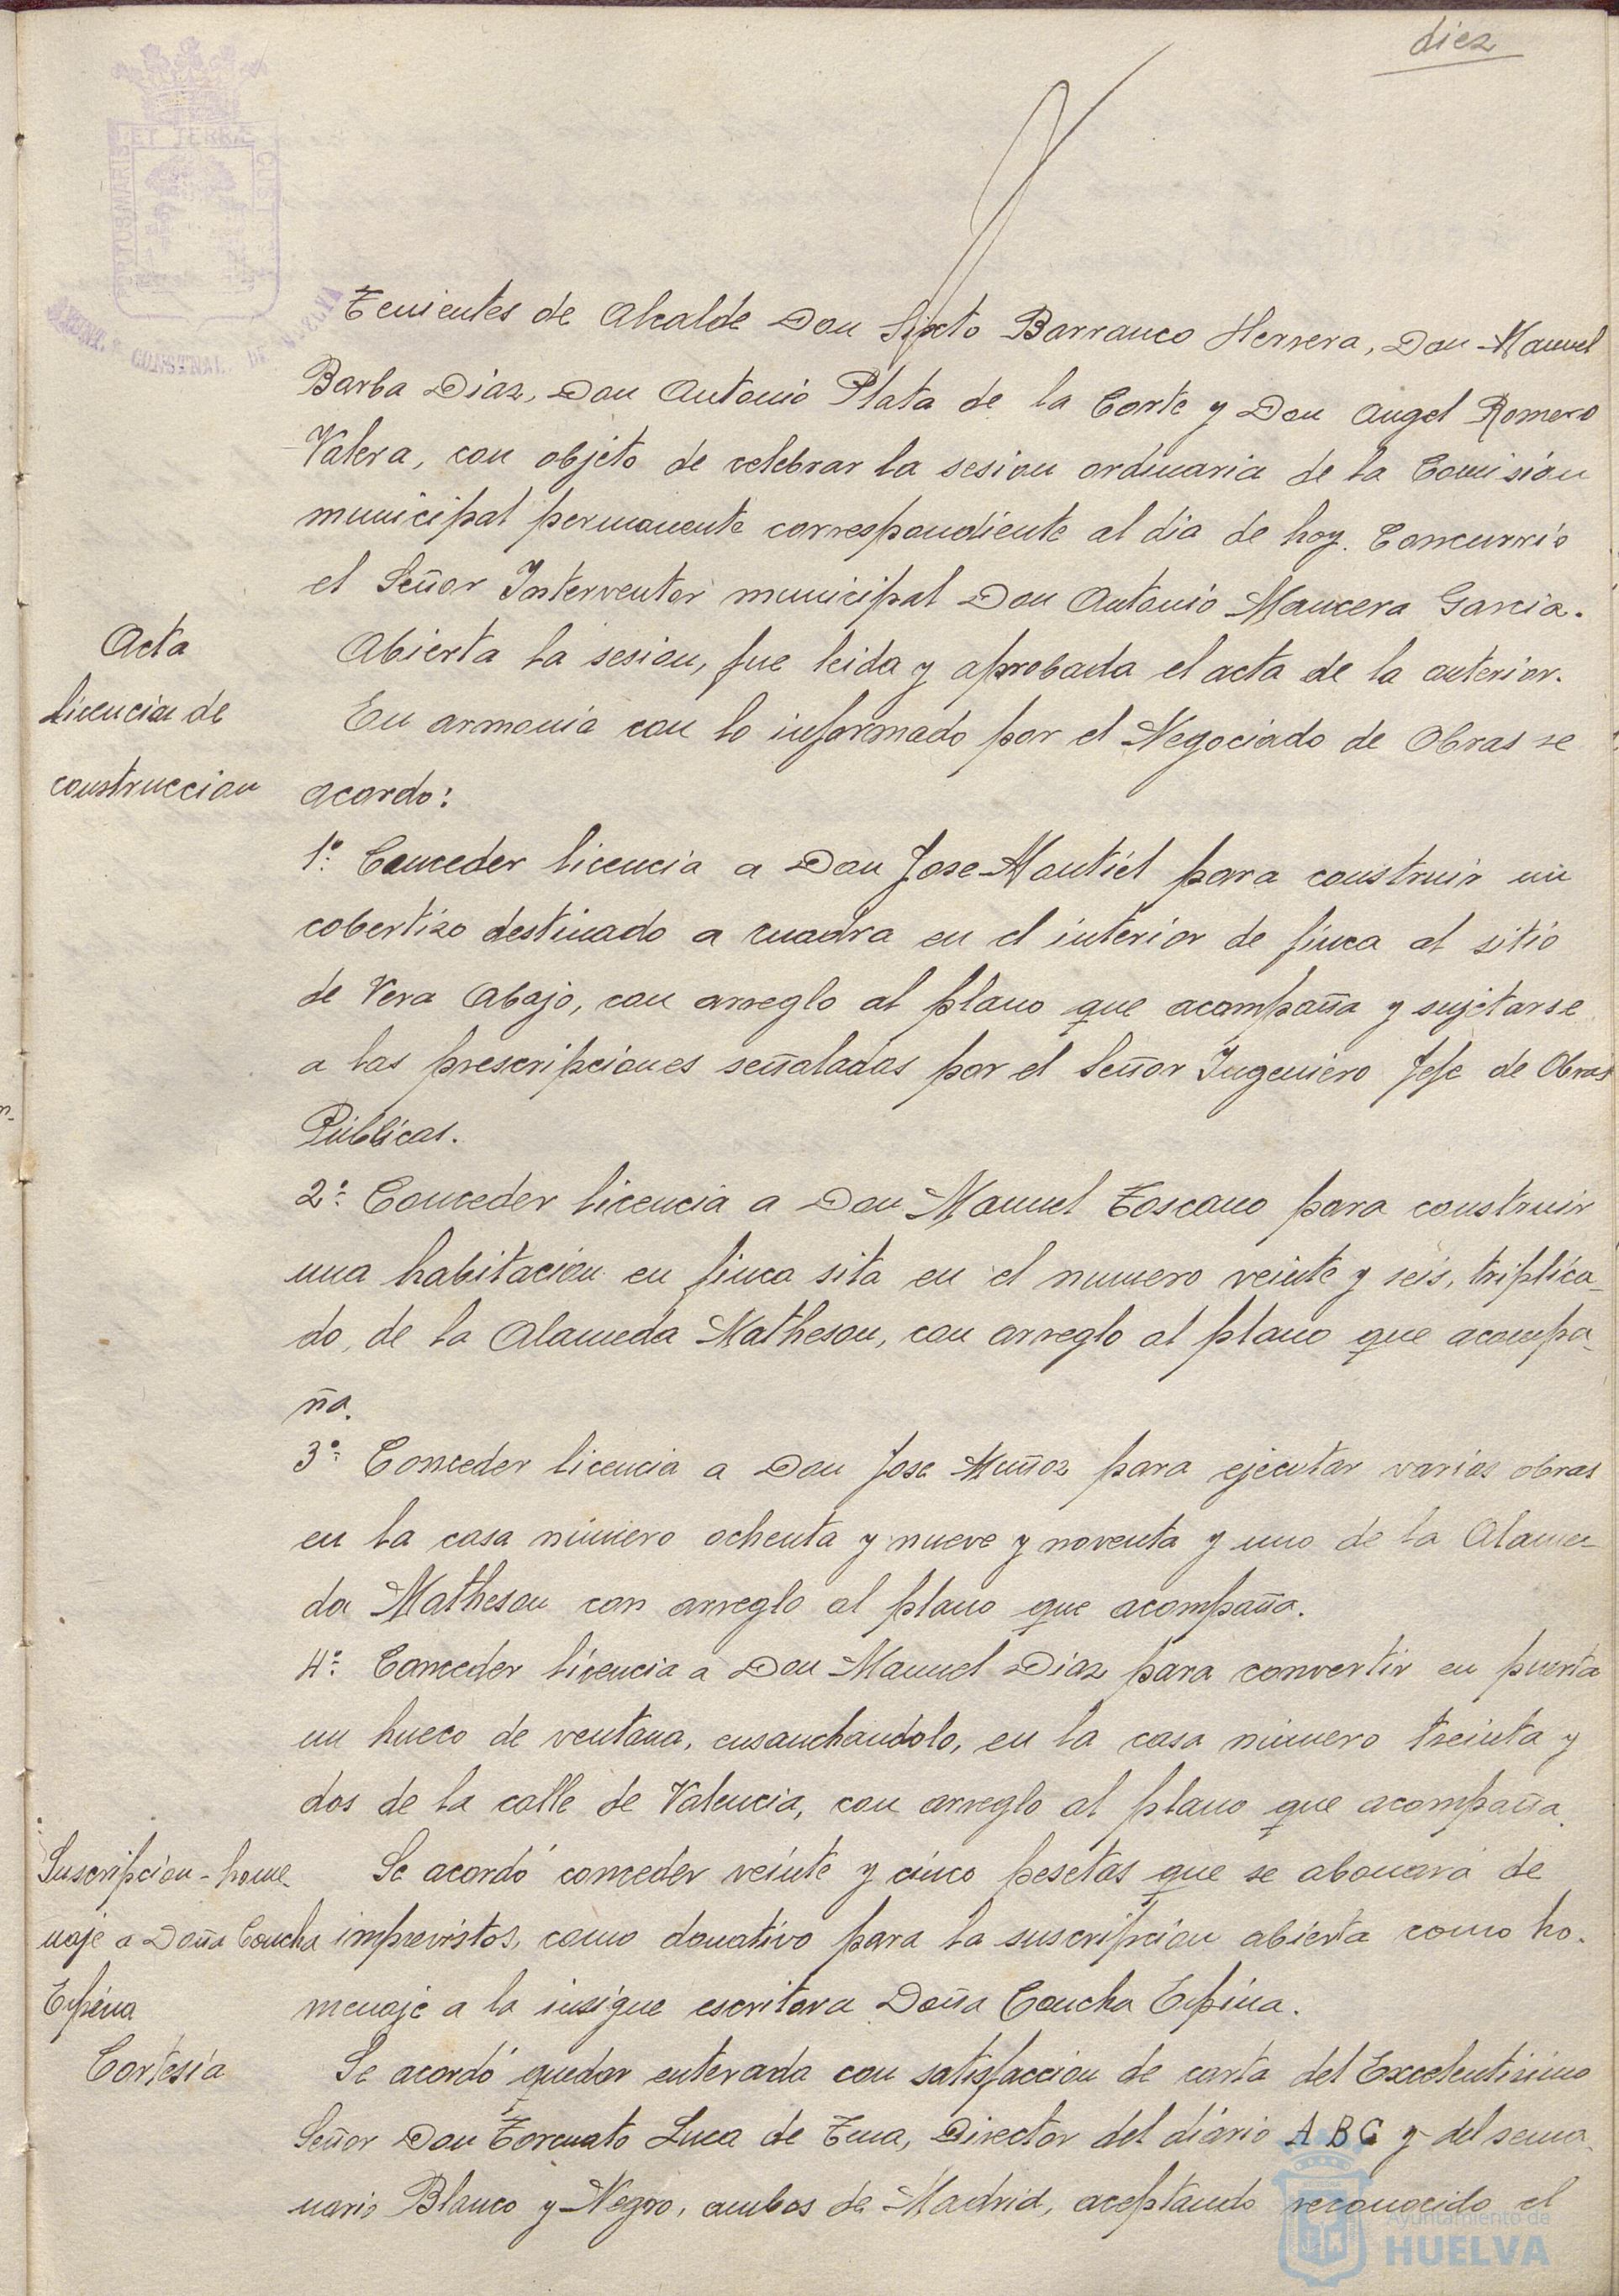 diez
PORTUS MARIS ET TERRÆ CUSTODIA
Tenientes de Alcalde Don Sixto Barranco Herrera, Don Manuel
Barba Diaz, Don Antonio Plata de la Corte y Don Angel Romero
Valera, con objeto de celebrar la sesion ordinaria de la Comisión
municipal permanente correspondiente al dia de hoy. Concurrió
el Señor Interventor municipal Don Antonio Mancera Garcia.
Acta
Abierta la sesion, fue leida y aprobada el acta de la anterior.
Licencias de
construccion
En armonia con lo informado por el Negociado de Obras se
acordo:
1º: Conceder licencia a Don Jose Montiel para construir un
cobertizo destinado a cuadra en el interior de finca al sitio
de Vera Abajo, con arreglo al plano que acompaña y sujetarse
a las prescripciones señaladas por el Señor Ingeniero Jefe de Obras
Públicas.
2º: Conceder licencia a Don Manuel Toscano para construir
una habitacion en finca sita en el numero veinte y seis, triplica-
do, de la Alameda Matheson, con arreglo al plano que acompa-
ña.
3º: Conceder licencia a Don Jose Muñoz para ejecutar varias obras
en la casa número ochenta y nueve y noventa y uno de la Alame-
da Matheson con arreglo al plano que acompaña.
4º: Conceder licencia a Don Manuel Diaz para convertir en puerta
un hueco de ventana, ensanchandolo, en la casa número treinta y
dos de la calle de Valencia, con arreglo al plano que acompaña.
Suscripcion-home-
naje a Doña Concha
Espina
Se acordó conceder veinte y cinco pesetas que se abonará de
imprevistos, como donativo para la suscripcion abierta como ho-
menaje a la insigne escritora Doña Concha Espina.
Cortesia
Se acordó quedar enterada con satisfaccion de carta del Excelentisimo
Señor Don Torcuato Luca de Tena, Director del diário A B C y del sema-
nario Blanco y Negro, ambos de Madrid, aceptando reconocido el
Ayuntamiento de
HUELVA